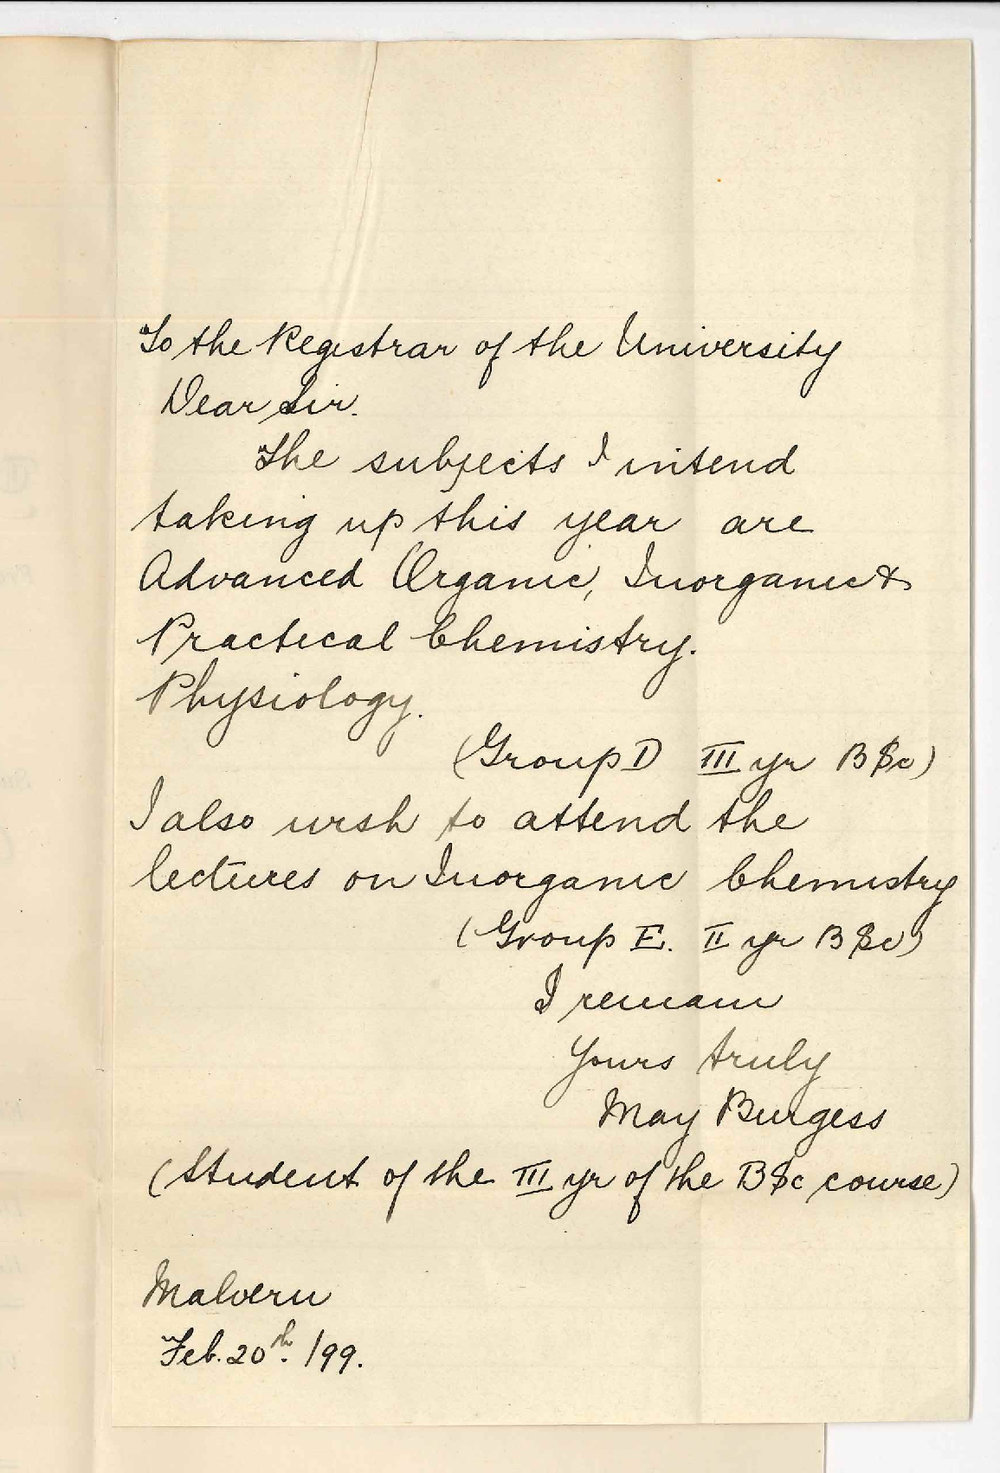 To the Registrar of the University
Dear Sir.
The subjects I intend
taking up this year are
Advanced Organic, Inorganic &
Practical Chemistry.
Physiology.
(Group D III yr BSc)
I also wish to attend the
lectures on Inorganic Chemistry
(Group E. II yr BSc)
I remain
Yours truly
May Burgess
(Student of the III yr of the BSc course)
Malvern
Feb. 20th. /99.